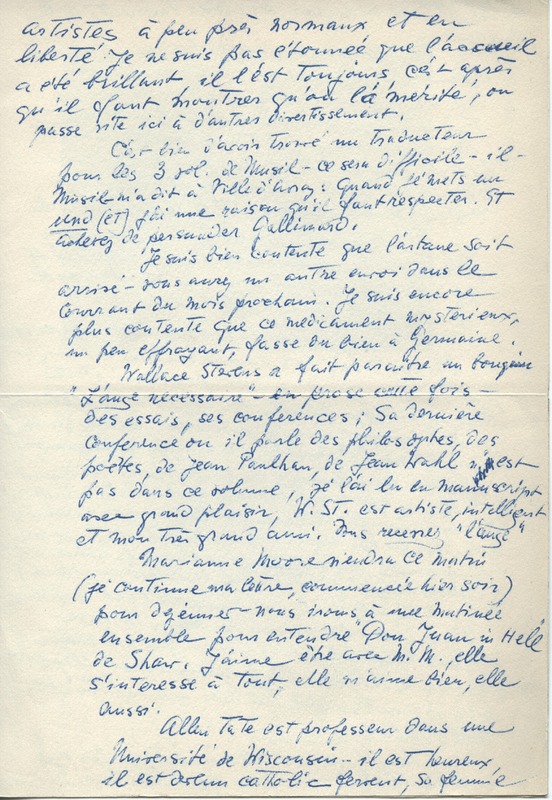 artistes à peu près normaux et en
liberté. Je ne suis pas étonnée que l'accueil
a été brillant il l'est toujours, c'est après
qu'il faut montrer qu'on l'a mérité, on
passe vite ici à d'autres divertissement.
C'est bien d'avoir trouvé un traducteur
pour les 3 vol. de Musil - ce sera difficile - il -
Musil m'a dit à Ville d'Avray: Quand je mets un
und (et) j'ai une raison qu'il faut respecter. Et
achevez de persuader Gallimard.
Je suis bien contente que l'astane soit
arrivé - vous aurez un autre envoi dans le
courrant du mois prochain. Je suis encore
plus contente que ce médicament mysterieux,
un peu effrayant, fasse du bien à Germaine.
Wallace Stevens a fait paraître un bouquin
"L'ange nécessaire" - en prose cette fois -
des essais, ses conférences; Sa dernière
conférence où il parle des philosophes, des
poètes, de Jean Paulhan, de Jean Wahl n'est
pas dans ce volume, je l'ai lu en manuscript
avec grand plaisir, W. St. est artiste, intelligent
et mon très grand ami. Vous recevrez "l'ange"
Marianne Moore viendra ce matin
(je continue ma lettre, commencée hier soir)
pour déjeuner - nous irons à une matinée
ensemble pour entendre "Don Juan in Hell"
de Shaw. J'aime être avec M. M., elle
s'interesse à tout, elle m'aime bien, elle
aussi.
Allen Tate est professeur dans une
Université de Wisconsin - il est heureux,
il est devenu catholic fervent, sa femme